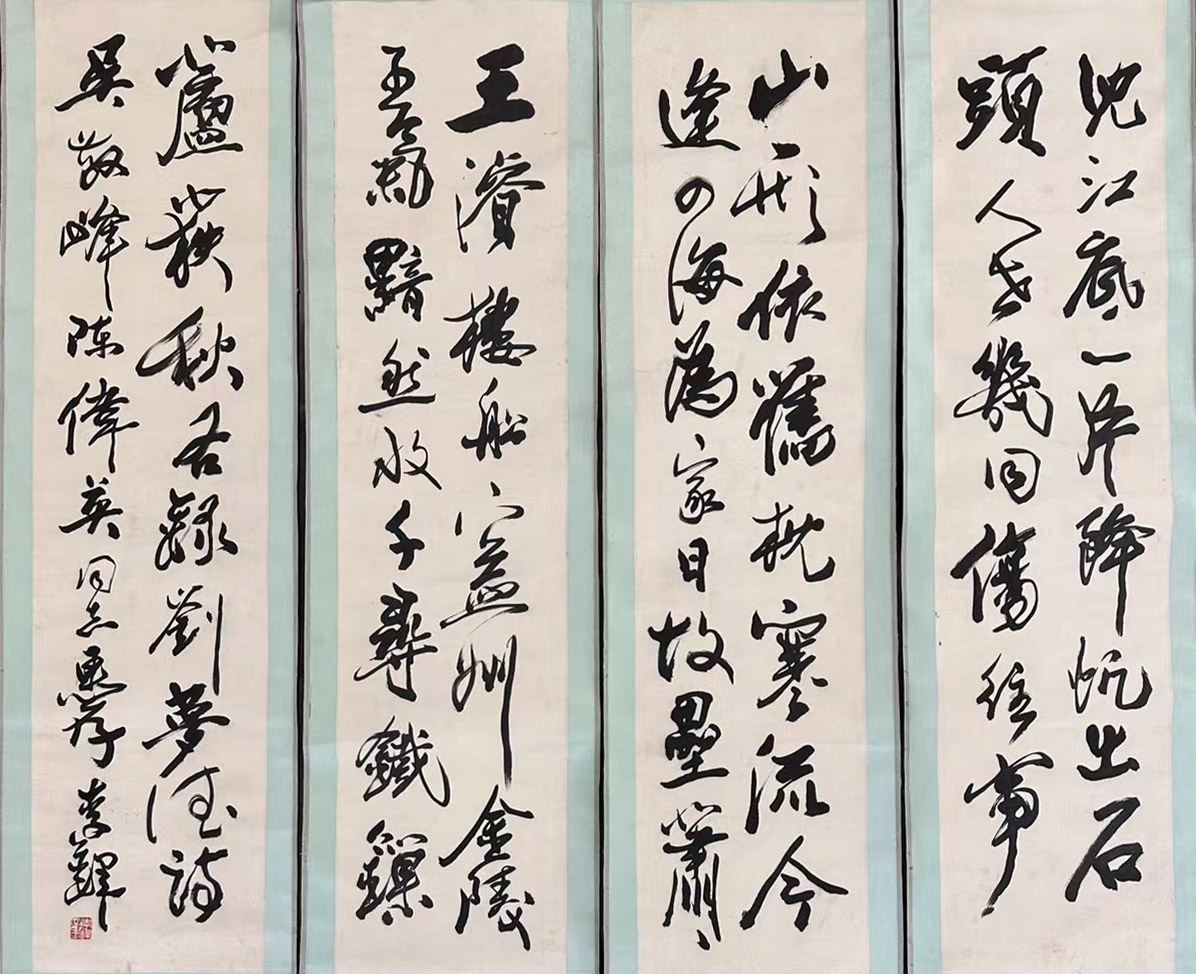 沉江底一片降帆出石
頭人世幾回傷往事
山形依舊枕寒流今
逢四海為家日故壘蕭〻
王濬樓船下益州金陵
王氣黯然收千尋鐵鎖
蘆荻秋右錄劉夢得詩
吳敬峰陳偉英同志惠存李鐸